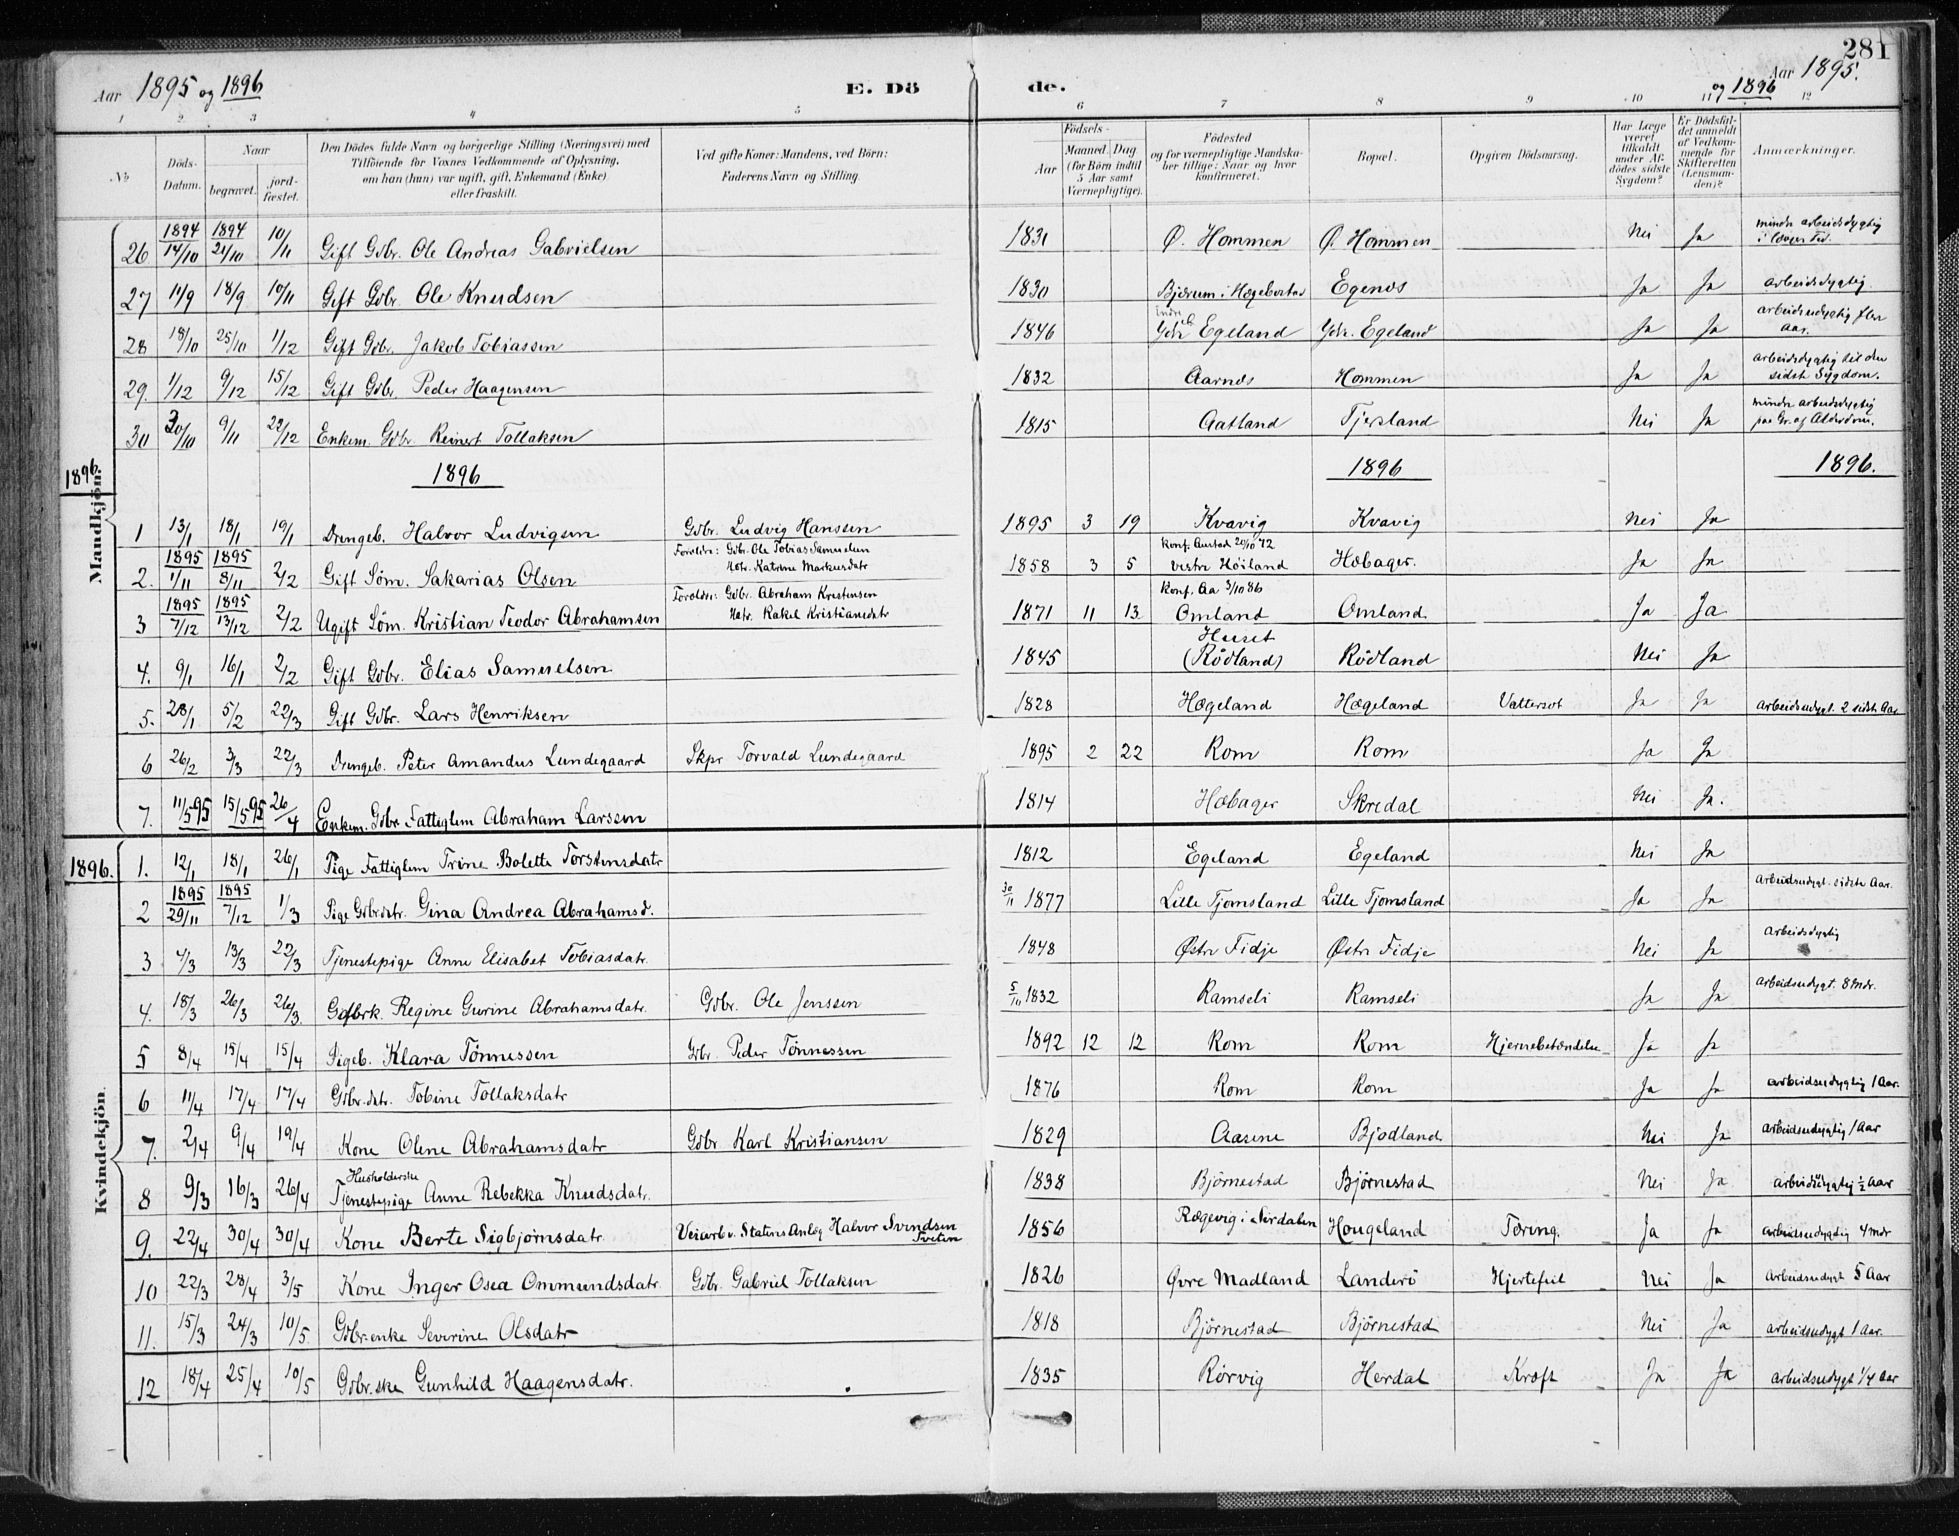 281
Aar 1895 og 1896 E. Dö de. Aar 1895.
og 1896
1 2 3 4 5 6 7 8 9 10 11 12
No
Döds-Datum.
Naar
begravet.
jord-fæstet.
Den Dödes fulde Navn og borgerlige Stilling (Næringsvei) med
Tilföiende for Voxnes Vedkommende af Oplysning,
om han (hun) var ugift, gift, Enkemand (Enke)
eller fraskilt.
Ved gifte Koner: Mandens, ved Börn:
Faderens Navn og Stilling.
Födsels-
Aar
Maaned. Dag
(for Börn indtil
5 Aar samt
Værnepligtige).
Födested
og for værnepligtige Mandska-
ber tillige: Naar og hvor
konfirmeret.
Bopæl.
Opgiven Dödsaarsag.
Har Læge
været
tilkaldt
under Af-
dödes sidste
Sygdom?
Er Dödsfal-
det anmeldt
af Vedkom-
mende for
Skifteretten
(Lensman-
den)?
Anmærkninger.
Mandkjön.
26 1894 14/10 1894 21/10 10/11 Gift Gdbr. Ole Andreas Gabrielsen 1831 Ø. Hommen Ø. Hommen Nei Ja mindre arbeidsdygtig
27 11/9 18/9 10/11 Gift Gdbr. Ole Knudsen 1830 Bjærum i Hægebostad Egenæs Ja Ja arbeidsdygtig
28 18/10 25/10 1/12 Gift Gdbr. Jakob Tobiassen 1846 Indre Egeland Egeland Ja Ja arbeidsudygtig flere Aar.
29. 1/12 9/12 15/12 Gift Gdbr. Peder Haagensen 1832 Aarnes Hommen Ja Ja arbeidsdygtig til den sidste Sygdom.
30 30/10 9/11 22/12 Enkem. Gdbr. Reinert Tollaksen 1815 Aatland Tjersland Nei Ja mindre arbeidsdygtig paa Gr. af Alderdom.
1896. 1896 1896 1896.
1 13/1 18/1 19/1 Drengeb. Halvor Ludvigsen Gdbr. Ludvig Hanssen 1895 3 19 Kvavig Kvavig Nei Ja
2. 1895 1/11 1895 8/11 2/2 Gift Söm. Sakarias Olsen Foreldre: Gdbr. Ole Tobias Samuelsen Hstr. Katrine Markusdatr 1858 3 5 Konf. Austad 20/10 72 vestre Höiland Hæbager. Ja Ja
3 1895 7/12 1895 13/12 2/2 Ugift Söm. Kristian Teodor Abrahamsen Foreldre: Gdbr. Abraham Kristensen Hstr. Rakel Kristiansdatr 1871 11 13 Konf. Aa 3/10 86 Omland Omland Ja Ja
4. 9/1 16/1 2/2 Gift Gdbr. Elias Samuelsen 1845 Huset (Rödland) Rödland Nei Ja
5. 28/1 5/2 22/3 Gift Gdbr. Lars Henriksen 1828 Hægeland Hægeland Vattersot Ja Ja arbeidsudygt. 2 sidste Aar
6 26/2 3/3 22/3 Drengeb. Peter Amandus Lundegaard Skpr Torvald Lundegaard 1895 2 22 Rom Rom Ja Ja
7. 11/5 95 15/5 95 26/4 Enkem. Gdbr Fattiglem Abraham Larssen 1814 Hæbager Skredal Nei Ja.
1896. Kvindekjön.
1. 12/1 18/1 26/1 Pige Fattiglem Trine Bolette Torstensdatr 1812 Egeland Egeland Nei Ja
2 1895 29/11 1895 7/12 1/3 Pige Gdbr.datr. Gina Andrea Abrahamsd. 30/11 1877 Lille Tjomsland Lille Tjomsland Ja Ja arbeidsudygt. sidste Aar.
3 4/3 13/3 22/3 Tjenestepige Anne Elisabet Tobiasdatr. 1848 Østre Fidje Østre Fidje Nei Ja arbeidsdygtig
4. 18/3 26/3 26/3. Gdbrk. Regine Gurine Abrahamsdatr. Gdbr. Ole Jenssen 5/10 1832 Ramseli Ramseli Ja Ja arbeidsudygt. 8 Mdr.
5 8/4 15/4 15/4 Pigeb. Klara Tönnessen Gdbr. Peder Tönnessen 1892 12 12 Rom Rom Hjernebetændelse Ja Ja
6 11/4 17/4 17/4 Gdbr.datr. Tobine Tollaksdatr 1876 Rom Rom Ja Ja arbeidsudygtig 1 Aar.
7. 2/4 9/4 19/4 Kone Olene Abrahamsdatr Gdbr Karl Kristiansen 1829 Aasene Bjodland Nei Ja arbeidsudygtig 1 Aar
8 9/3 16/3 26/4 Husholderske Tjenestepige Anne Rebekka Knudsdatr. 1838 Björnestad Björnestad Nei Ja arbeidsudygtig 1/2 Aar
9. 22/4 30/4 30/4 Kone Berte Sigbjørnsdatr. Veiarb v. Statens Anlæg Halvor Svendsen Tveiten 1856 Rægevig i Sirdalen Hougeland Tæring. Ja Ja arbeidsudygtig 4 Mdr
10 22/3 28/4 3/5 Kone Inger Osea Ommundsdatr. Gdbr. Gabriel Tollaksen 1826 Øvre Madland Landerö Hjertefeil Nei Ja arbeidsudygt 5 Aar
11. 15/3 24/3 10/5 Gdbr.enke Severine Olsdatr 1818 Björnestad Björnestad Nei Ja arbeidsudygt 1 Aar.
12 18/4 25/4 10/5 Gdbr.ske Gunhild Haagensdatr. 1835 Rörvig Herdal Kræft Ja Ja arbeidsudygt 1/4 Aar